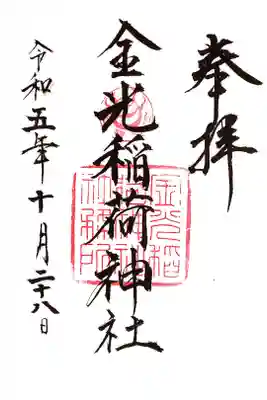 奉拝
金光稲荷神社
令和五年十月二十八日
金光稲
社務所